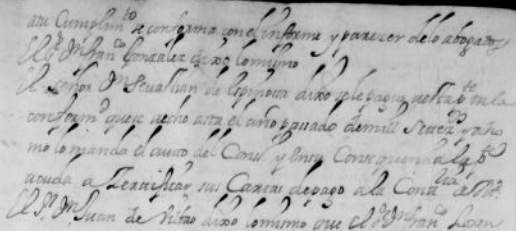 asu Cumplim.to se conforma con el informe y parecer de los abogados
El S.r D.n fran.co Gonzalez dixo lo mismo
El señor D.n Sevastian de Espinosa dixo se le pague esta p.te en la
conform.d que se a echo asta el año pasado de mill Setez.s
mo lo manda el auto del Cons.o y en su Consequencia la p.te
acuda a Zertificar sus Cartas de pago a la Cont.ria de
El S.r D.n Juan de dixo lo mismo que el S.r D.n fran.co